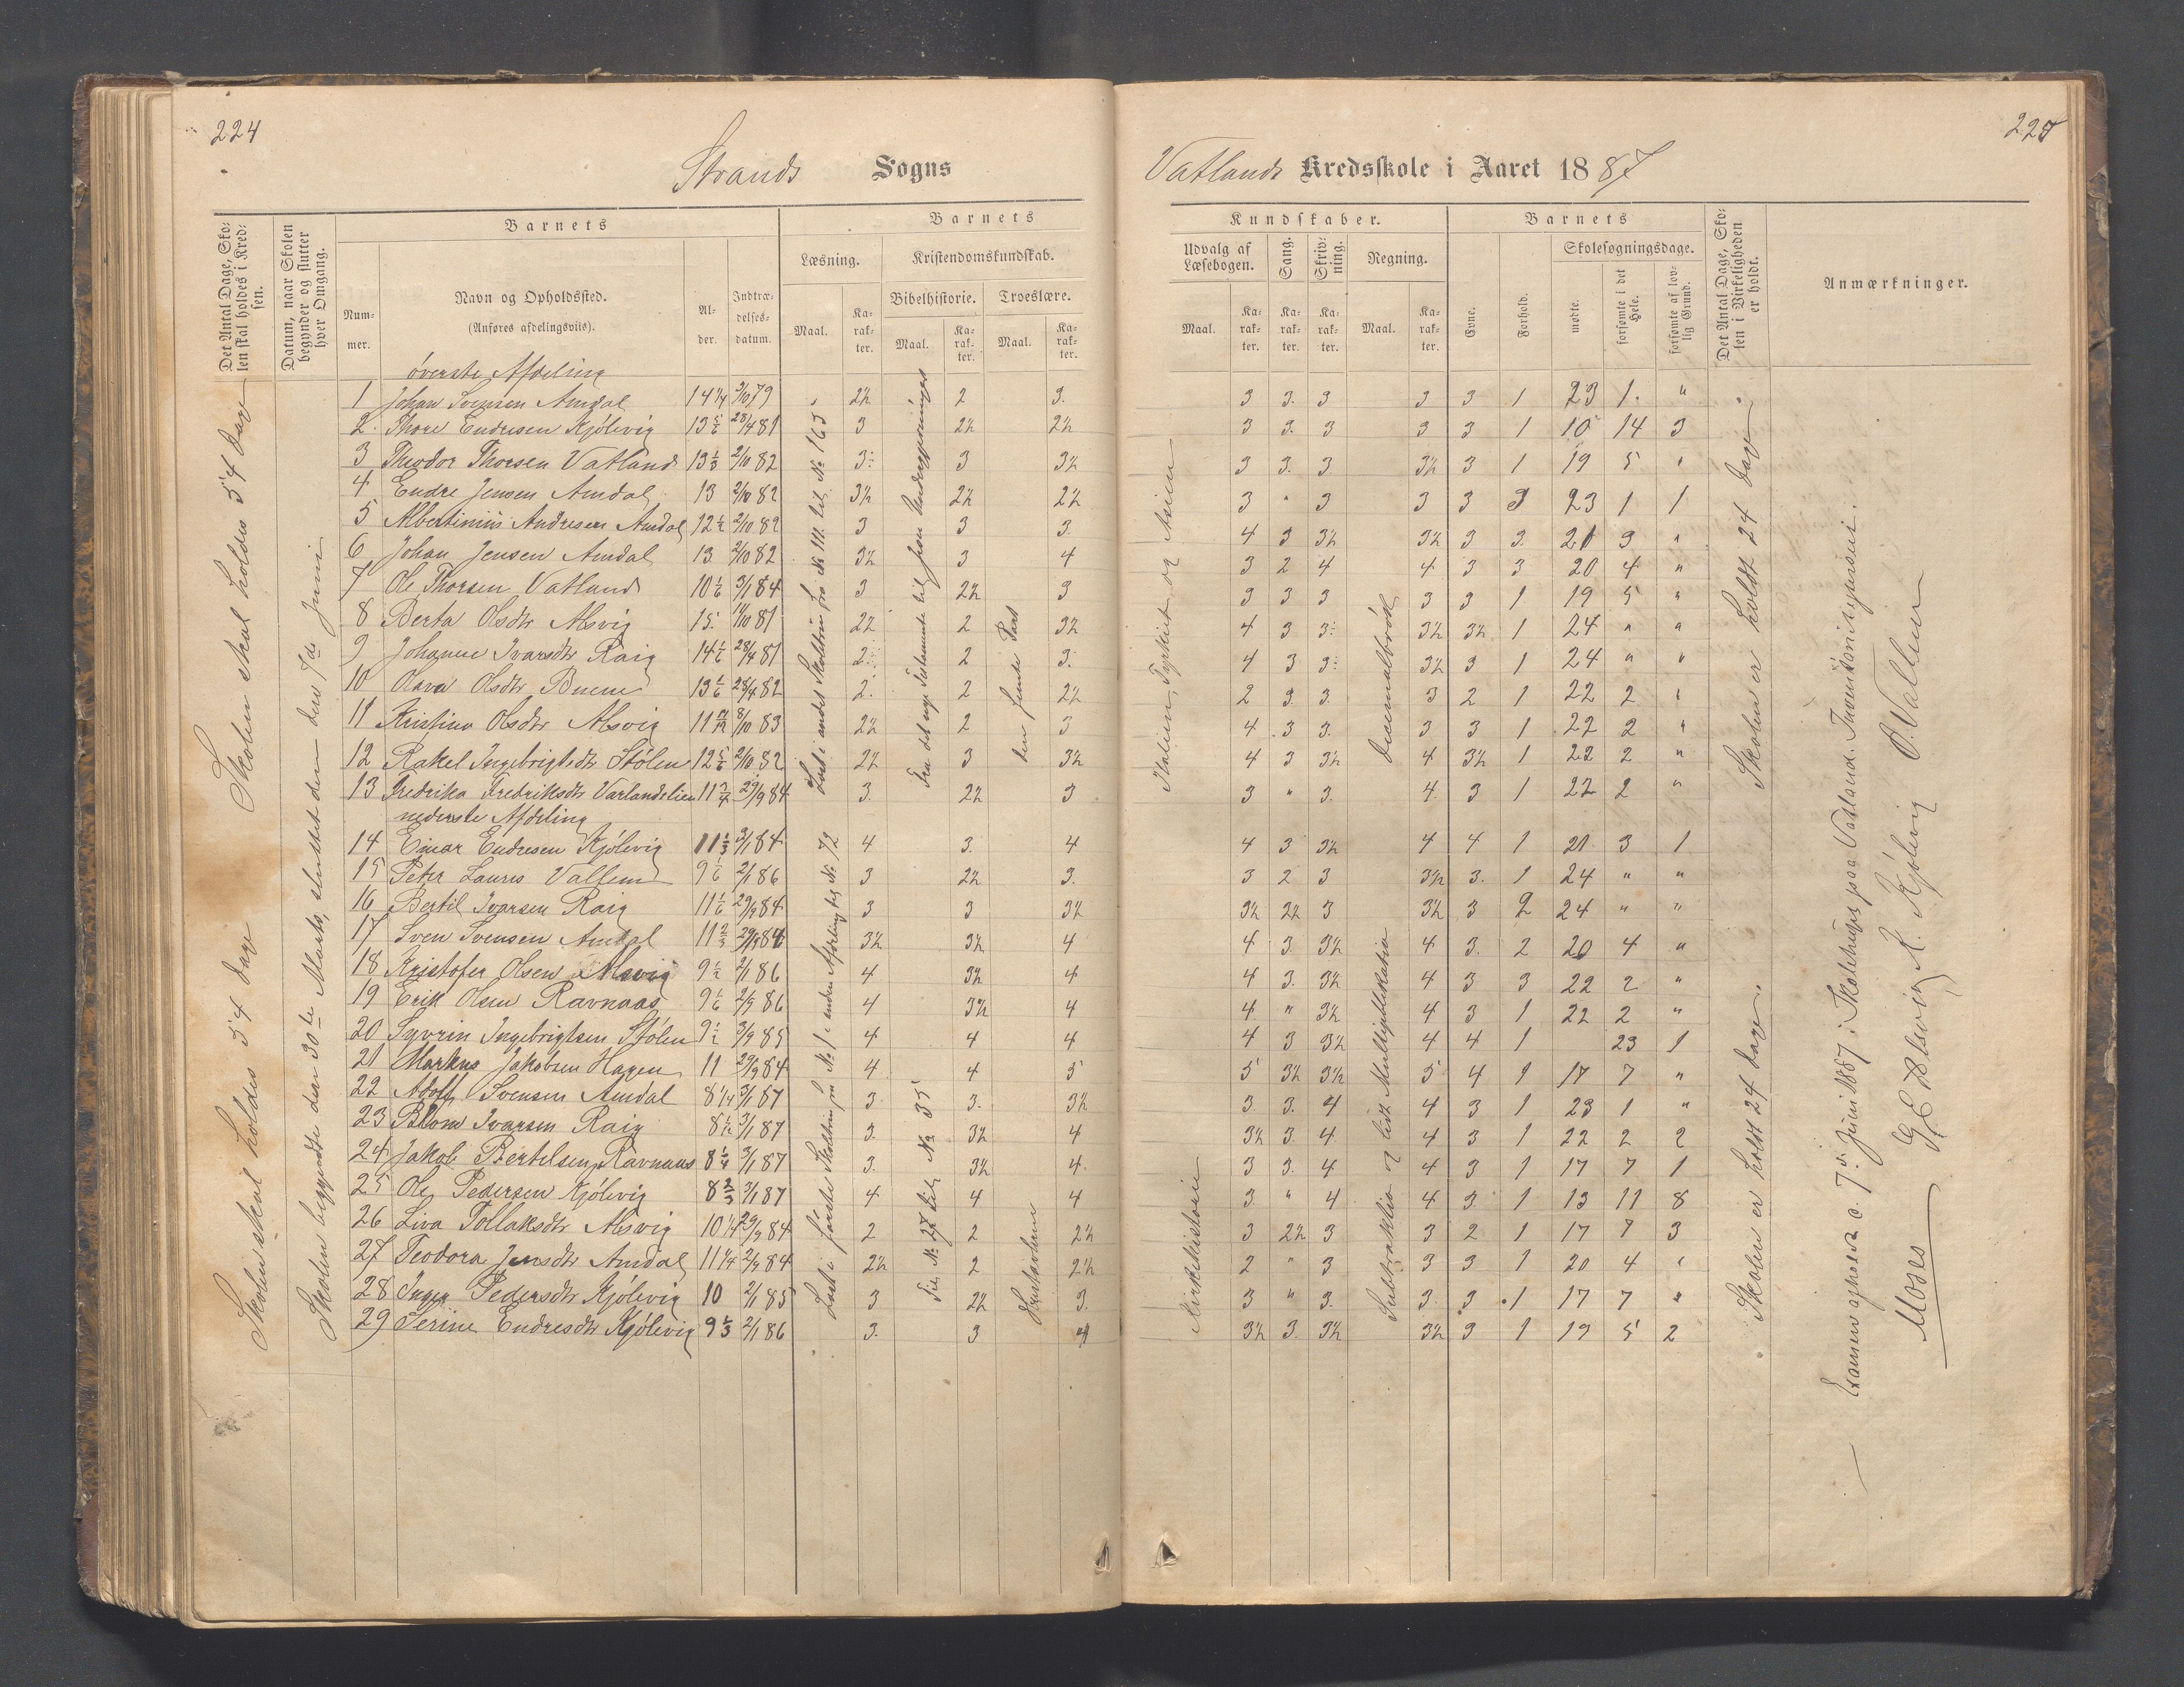 224
Strands Sogns
Det Antal Dage, Sko-
len skal holdes i Kred-
sen.
Datum, naar Skolen
begynder og slutter
hver Omgang.
Barnets
Num-
mer.
Navn og Opholdssted.
(Anføres afdelingsviis).
Al-
der.
Indtræ-
delses-
datum.
Barnets
Læsning.
Kristendomskundskab.
Bibelhistorie. Troeslære.
Maal. Ka-
rak-
ter.
Maal. Ka-
rak-
ter.
Maal. Ka-
rak-
ter.
Skolen skal holdes 54 Dage
Skolen skal holdes 54 Dage
Skolen begyndte den 30te Marts, sluttet den 7de Juni
øverste Afdeling
1 Johan Svensen Amdal 14 1/4 3/10 79 2½ 2 3.
2. Thore Endresen Kjølevig 13 5/6 28/4 81 3 2½ 2½
3 Theodor Thorsen Vatland 13 1/3 2/10 82 3 3 3½
4 Endre Jensen Amdal 13 2/10 82 3½ 2½ 2½
5 Albertinius Andresen Amdal 12 1/2 2/10 82 3 3 3.
6 Johan Jensen Amdal 13 2/10 82 3½ 3 4
7 Ole Thorsen Vatland 10 1/6 3/1 84 3 2½ 3
8 Berta Olsdtr Alsvig 15. 11/10 81 2½ 2 3½
9 Johanne Ivarsdtr Raig 14 1/6 28/4 81 2 2 3.
10 Olava Olsdtr Buene 13 1/6 28/4 82 2. 2 2½
11 Kristine Olsdtr Alsvig 11 11/12 8/10 83 2½ 2 3
12 Rakel Ingebrigtsdtr Stølen 12 5/6 2/10 82 2½ 3 3½
13 Fredrika Fredriksdtr Varlandslien 11 3/4 29/9 84 3. 2½ 3
nederste Afdeling
14 Einar Endresen Kjølevig 11 1/3 3/1 84 4 3. 4
15 Peter Laures Vallem 9 1/6 2/1 86 3 2½ 3.
16 Bertil Ivarsen Raig 11 1/6 29/9 84 3 3 3½
17 Sven Svensen Amdal 11 2/3 29/9 84 3½ 3½ 4
18 Kristofer Olsen Alsvig 9 1/2 2/1 86 4 3½ 4
19 Erik Olsen Ravnaas 9 1/6 2/9 86 4 3½ 4
20 Syvrin Ingebrigtsen Stølen 9 1/2 3/9 85 4 4 4
21 Markus Jakobsen Hagen 11 29/9 84 4 4 5
22 Adolf Svensen Amdal 8 1/4 3/1 87 3 3. 3½
23 Blom Ivarsen Raig 8 1/12 3/1 87 3. 3½ 4
24 Jakob Bertelsen Ravnaas 8 1/4 3/1 87 3. 3½ 4.
25 Ole Pedersen Kjølevig 8 2/3 3/1 87 4 4 4
26 Liva Tollaksdtr Alsvig 10 1/4 29/9 84 2 2 2½
27 Teodora Jensdtr Amdal 11 1/4 2/9 84 2½ 2 2½
28 Inger Pedersdtr Kjølevig 10 2/1 85 3 2½ 3.
29 Serine Endresdtr Kjølevig 9 1/3 2/1 86 3. 3 4
Læst i andet Skoletrin fra № 111 til № 163
Læst i første Skoletrin fra № 1 i anden Afdeling til № 72
Fra det nye Testamente til
Fra № 27 til № 35
den femte Part
225
Vatlands Kredsskole i Aaret 1887
Kundskaber.
Udvalg af
Læsebogen.
Sang.
Skriv-
ning.
Regning.
Maal. Ka-
rak-
ter.
Ka-
rak-
ter.
Ka-
rak-
ter.
Maal. Ka-
rak-
ter.
Barnets
Evne.
Forhold.
Skolesøgningsdage.
mødte.
forsømte i det
Hele.
forsømte af lov-
lig Grund.
Det Antal Dage, Sko-
len i Virkeligheden
er holdt.
Anmærkninger.
3 3. 3 3 3 1 23 1. "
3 3. 3 3 3 1 10 14 3
3 3. 3. 3½ 3 1 19 5 "
3 " 3 3 3 3 23 1 1
4 3 3½ 3½ 3 3. 21 3 "
3 2 4 4 3 3 20 4 "
3 3 3 3 3 1 19 5 "
4 3 3 3½ 3½ 1 24 " "
4 3 3 3½ 3 1 24 " "
2 3. 3. 3 2 1 22 2 "
4 3 3. 3 3 1 22 2 "
4 3 3½ 4 3½ 1 22 2 "
3 " 3. 4. 3 1 22 2 "
4 3 3½ 4 4 1 21 3 1
3 2 3 3½ 3. 1 24 " "
3½ 2½ 3 3½ 3 2 24 " "
4 3. 3½ 4 3. 2 20 4 "
4 3. 3½ 4 3 3 22 2 "
4 " 3½ 4 3 1 22 2 "
4 3 3½ 4 4 1 23 1
5 3½ 3½ 5 4 1 17 7 "
3 3. 4 4 3 1 23 1 "
3½ 3. 4. 4 3 1 22 2 2
3 3. 4 4 3 1 17 7 1
3 " 4 4 3. 1 13 11 8
3 2½ 3 3 2 1 17 7 3
2 " 3 3 3 1 20 4 "
3 " 3. 3. 3 1 17 7 "
3½ 3. 3½ 3½ 3 1 19 5 2
Italien, Tyrkiet og Asien
Kirkehistorie
Decimalbrøk
Subtraktion og lidt Multiplikation
Skolen er holdt 24 Dage
Skolen er holdt 24 Dage.
Examens afholdt d. 7de Juni 1887 i Skolehuset paa Vatland.
G E Alsvig K. Kjølevig O. Vallem
Moses